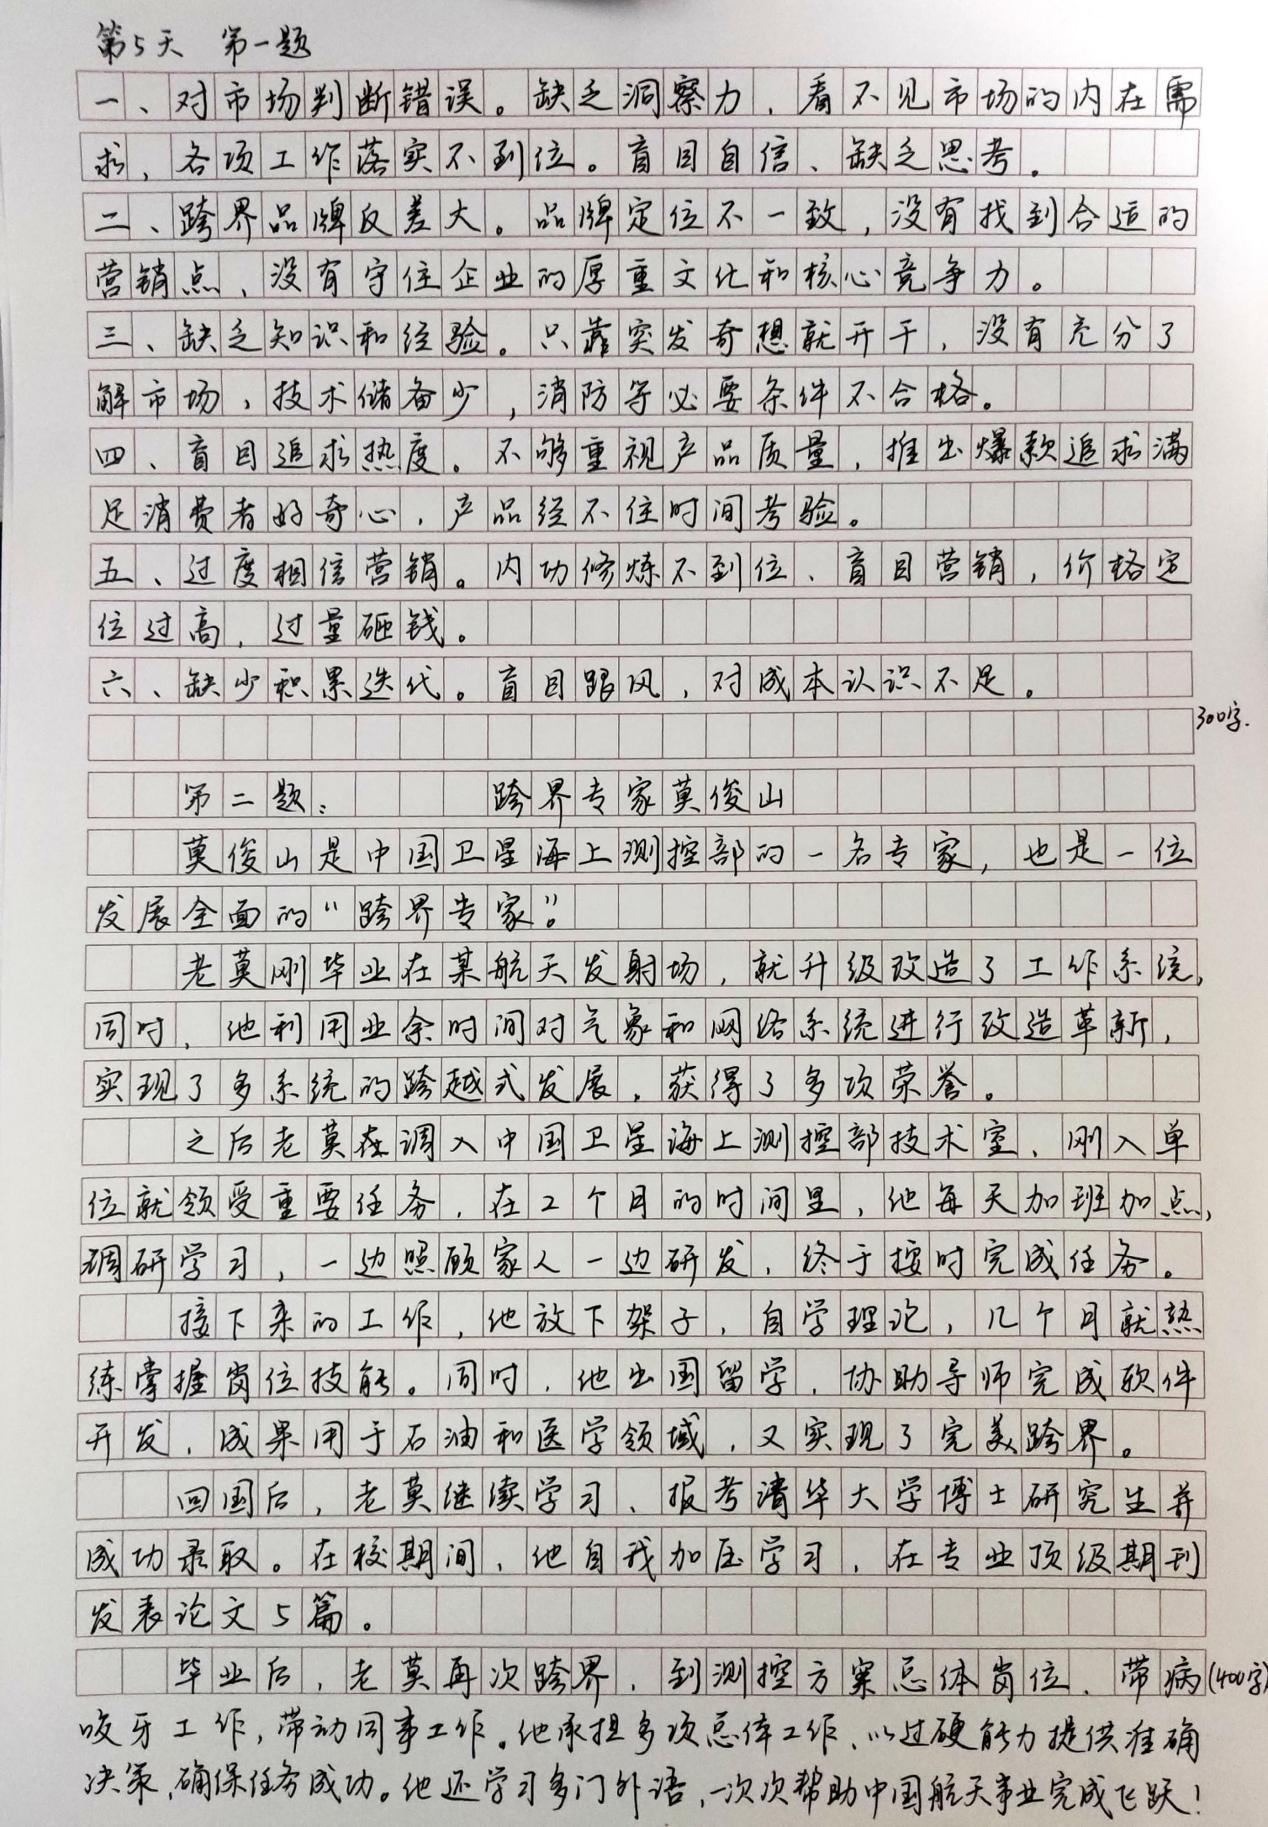 第5天 第一题
一、对市场判断错误。缺乏洞察力，看不见市场的内在需
求，各项工作落实不到位。盲目自信、缺乏思考。
二、跨界品牌反差大。品牌定位不一致，没有找到合适的
营销点、没有守住企业的厚重文化和核心竞争力。
三、缺乏知识和经验。只靠突发奇想就开干，没有充分了
解市场，技术储备少，消防等必要条件不合格。
四、盲目追求热度。不够重视产品质量，推出爆款追求满
足消费者好奇心，产品经不住时间考验。
五、过度相信营销。内功修炼不到位、盲目营销，价格定
位过高，过量砸钱。
六、缺少积累迭代。盲目跟风，对成本认识不足。
300字.
第二题： 跨界专家莫俊山
莫俊山是中国卫星海上测控部的一名专家，也是一位
发展全面的“跨界专家”。
老莫刚毕业在某航天发射场，就升级改造了工作系统，
同时，他利用业余时间对气象和网络系统进行改造革新，
实现了多系统的跨越式发展，获得了多项荣誉。
之后老莫在调入中国卫星海上测控部技术室、刚入单
位就领受重要任务，在2个月的时间里，他每天加班加点，
调研学习，一边照顾家人一边研发，终于按时完成任务。
接下来的工作，他放下架子，自学理论，几个月就熟
练掌握岗位技能。同时，他出国留学，协助导师完成软件
开发，成果用于石油和医学领域，又实现了完美跨界。
回国后，老莫继续学习、报考清华大学博士研究生并
成功录取。在校期间，他自我加压学习，在专业顶级期刊
发表论文5篇。
毕业后，老莫再次跨界，到测控方案总体岗位、带病(400字)
咬牙工作，带动同事工作。他承担多项总体工作、以过硬能力提供准确
决策、确保任务成功。他还学习多门外语，一次次帮助中国航天事业完成飞跃！